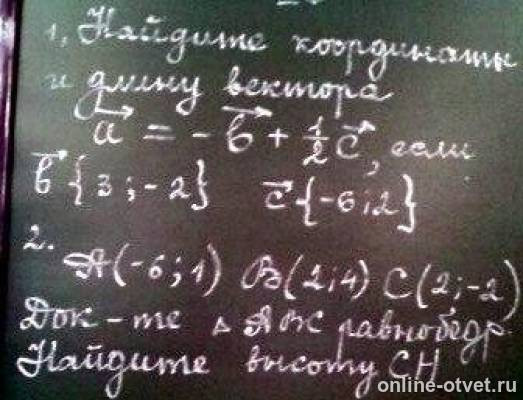 1. Найдите координаты
и длину вектора
a⃗ = - b⃗ + 1/2 c⃗, если
b⃗ {3 ; -2} c⃗ {-6 ; 2}
2.
A(-6 ; 1) B(2 ; 4) C(2 ; -2)
Док-те Δ ABC равнобедр.
Найдите высоту CH
online-otvet.ru